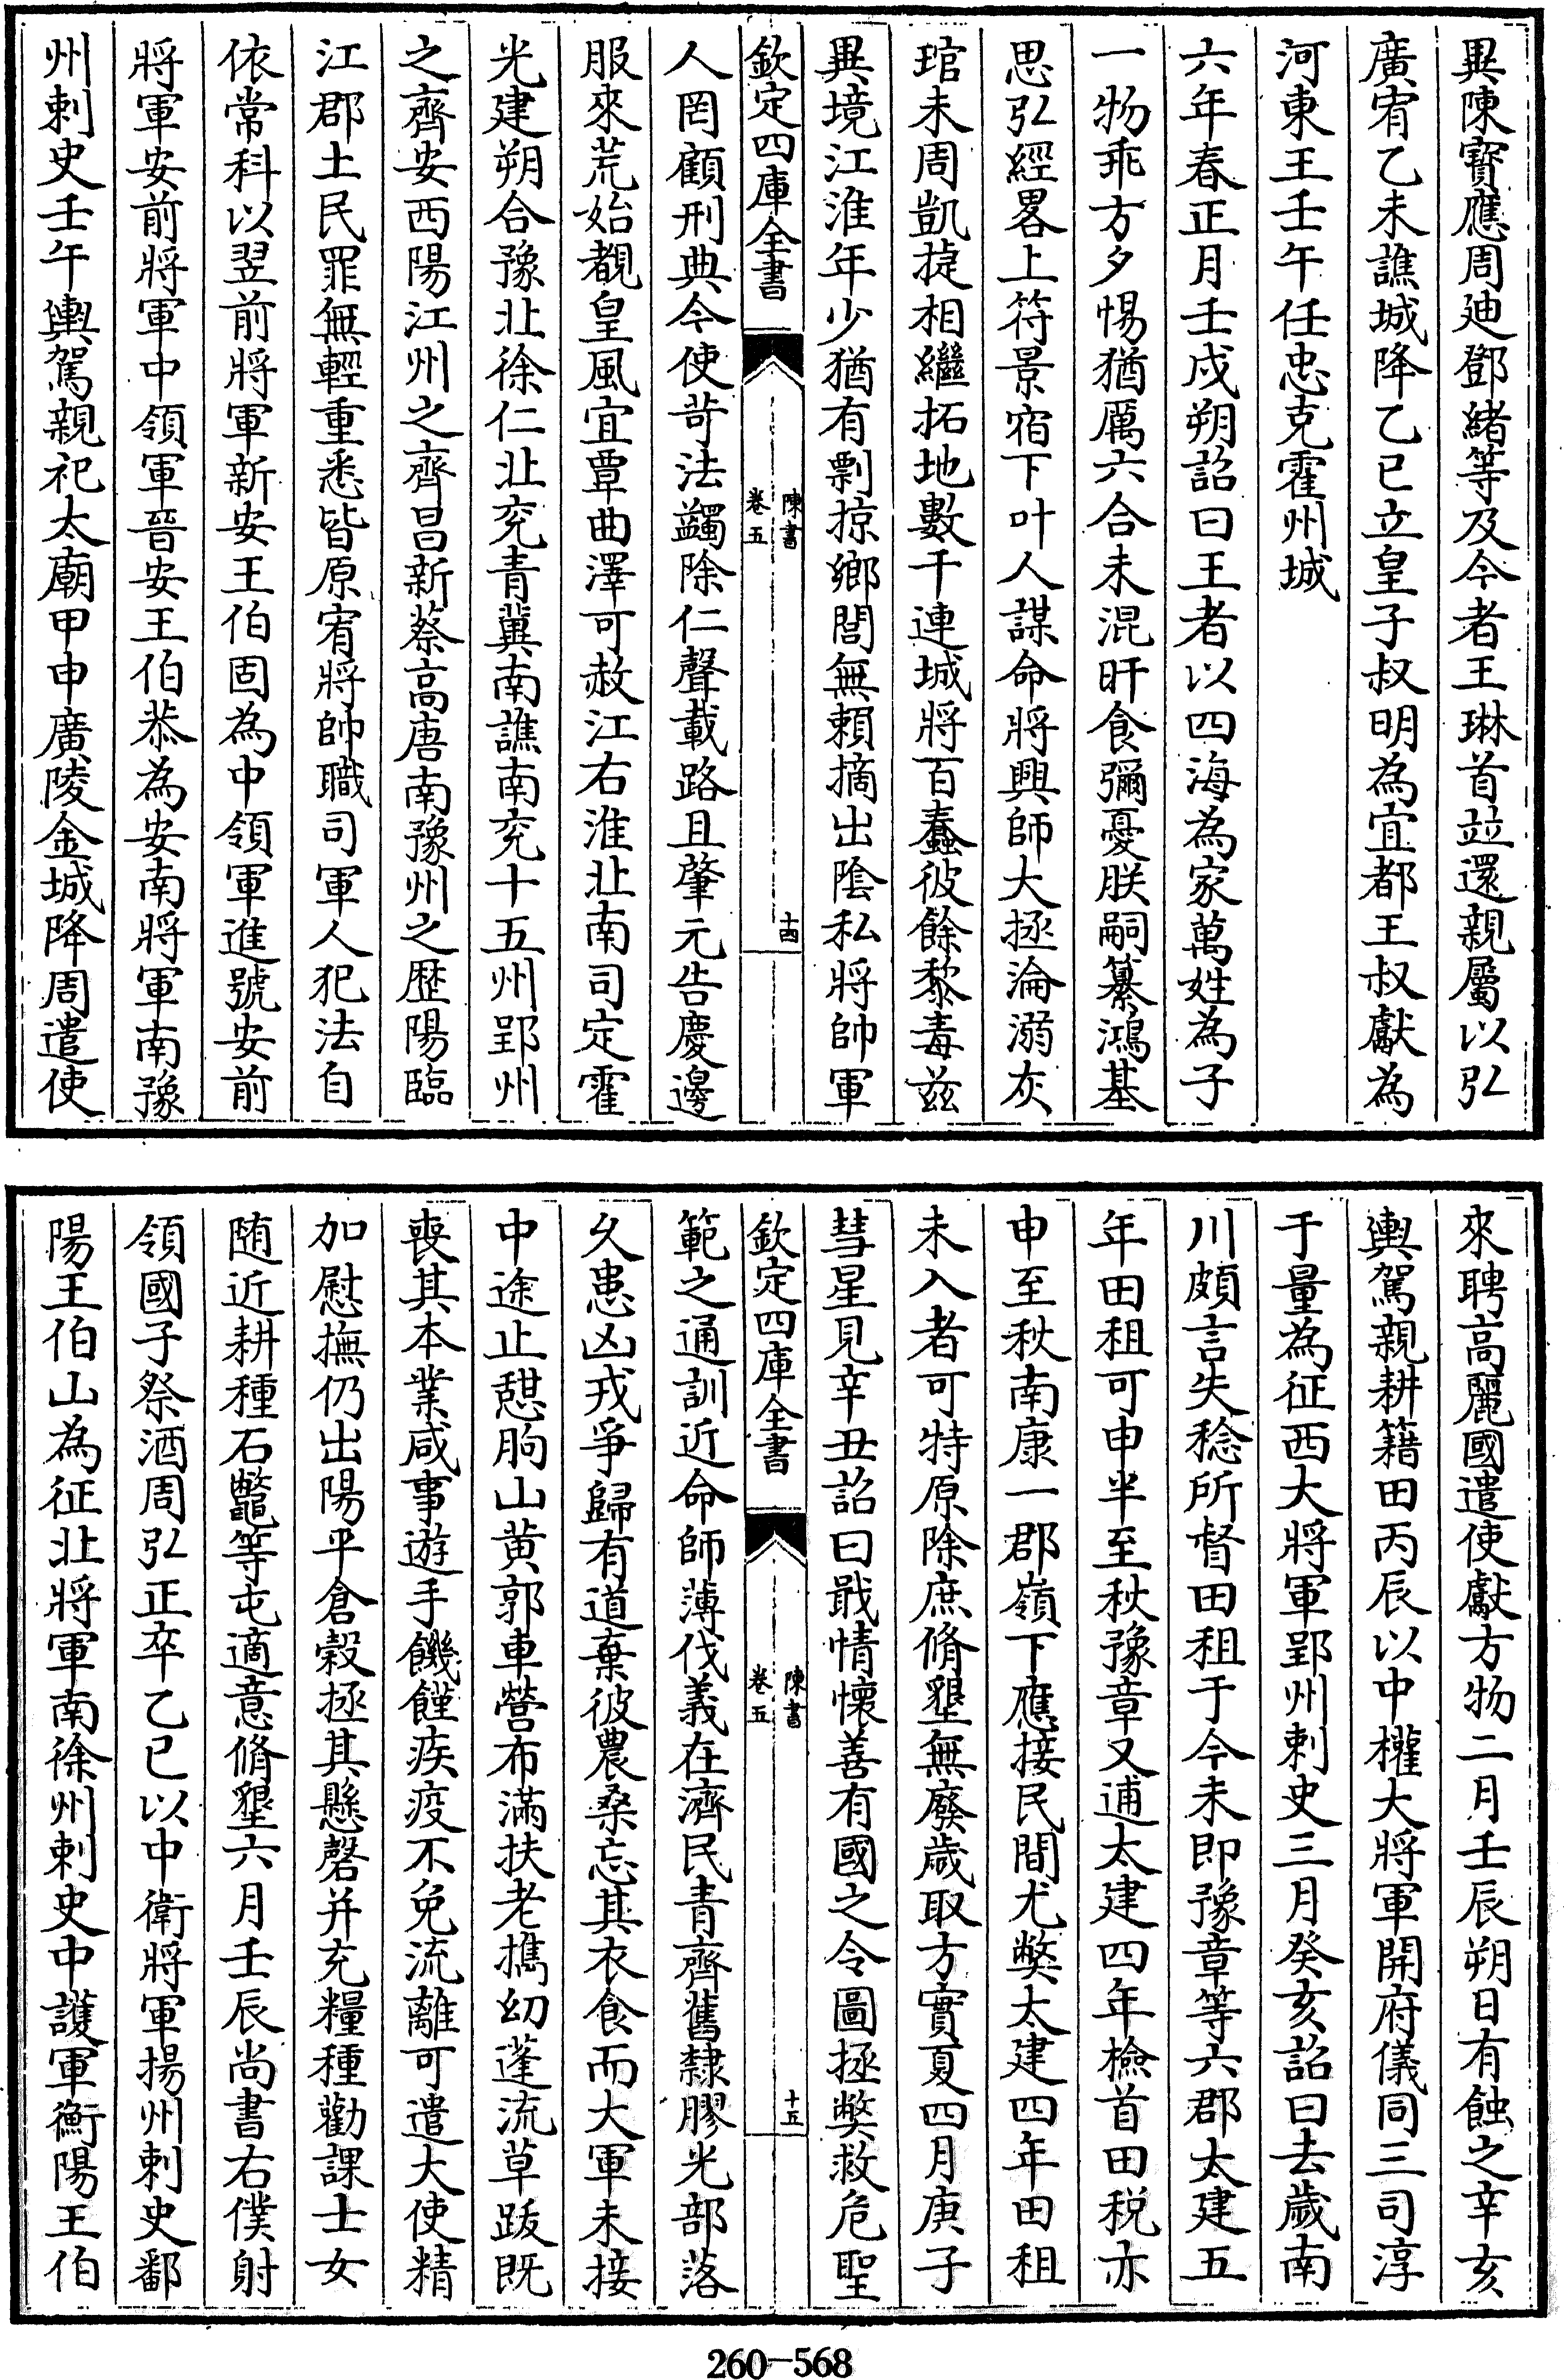 異陳寳應周迪鄧緒等及今者王琳首竝還親屬以弘
廣宥乙未譙城降乙巳立皇子叔明為宜都王叔獻為
河東王壬午任忠克霍州城
六年春正月壬戍朔詔曰王者以四海為家萬姓為子
一物乖方夕惕猶厲六合未混旰食彌憂朕嗣纂鴻基
思弘經畧上符景宿下叶人謀命將興師大拯淪溺灰
琯未周凱捷相繼拓地數千連城將百蠢彼餘黎毒兹
異境江淮年少猶有剽掠鄉閭無賴摘出陰私將帥軍
欽定四庫全書
陳書
卷五
十四
人罔顧刑典今使苛法蠲除仁聲載路且肇元告慶邊
服來荒始覩皇風宜覃曲澤可赦江右淮北南司定霍
光建朔合豫北徐仁北兖青冀南譙南兖十五州郢州
之齊安西陽江州之齊昌新蔡高唐南豫州之歴陽臨
江郡土民罪無輕重悉皆原宥將帥職司軍人犯法自
依常科以翌前將軍新安王伯固為中領軍進號安前
將軍安前將軍中領軍晉安王伯恭為安南將軍南豫
州刺史壬午輿駕親祀太廟甲申廣陵金城降周遣使
來聘高麗國遣使獻方物二月壬辰朔日有蝕之辛亥
輿駕親耕籍田丙辰以中權大將軍開府儀同三司淳
于量為征西大將軍郢州刺史三月癸亥詔曰去歲南
川頗言失稔所督田租于今未即豫章等六郡太建五
年田租可申半至秋豫章又逋太建四年檢首田税亦
申至秋南康一郡嶺下應接民間尤獘太建四年田租
未入者可特原除庶脩墾無廢歲取方實夏四月庚子
彗星見辛丑詔曰戢情懷善有國之令圖拯獘救危聖
欽定四庫全書
陳書
卷五
十五
範之通訓近命師薄伐義在濟民青齊舊隸膠光部落
久患凶戎爭歸有道棄彼農桑忘其衣食而大軍未接
中途止憇朐山黄郭車營布滿扶老擕幼蓬流草跋既
喪其本業咸事遊手饑饉疾疫不免流離可遣大使精
加慰撫仍出陽平倉穀拯其懸磬并充糧種勸課士女
随近耕種石鼈等屯適意脩墾六月壬辰尚書右僕射
領國子祭酒周弘正卒乙巳以中衛將軍揚州刺史鄱
陽王伯山為征北將軍南徐州刺史中護軍衡陽王伯
260-568